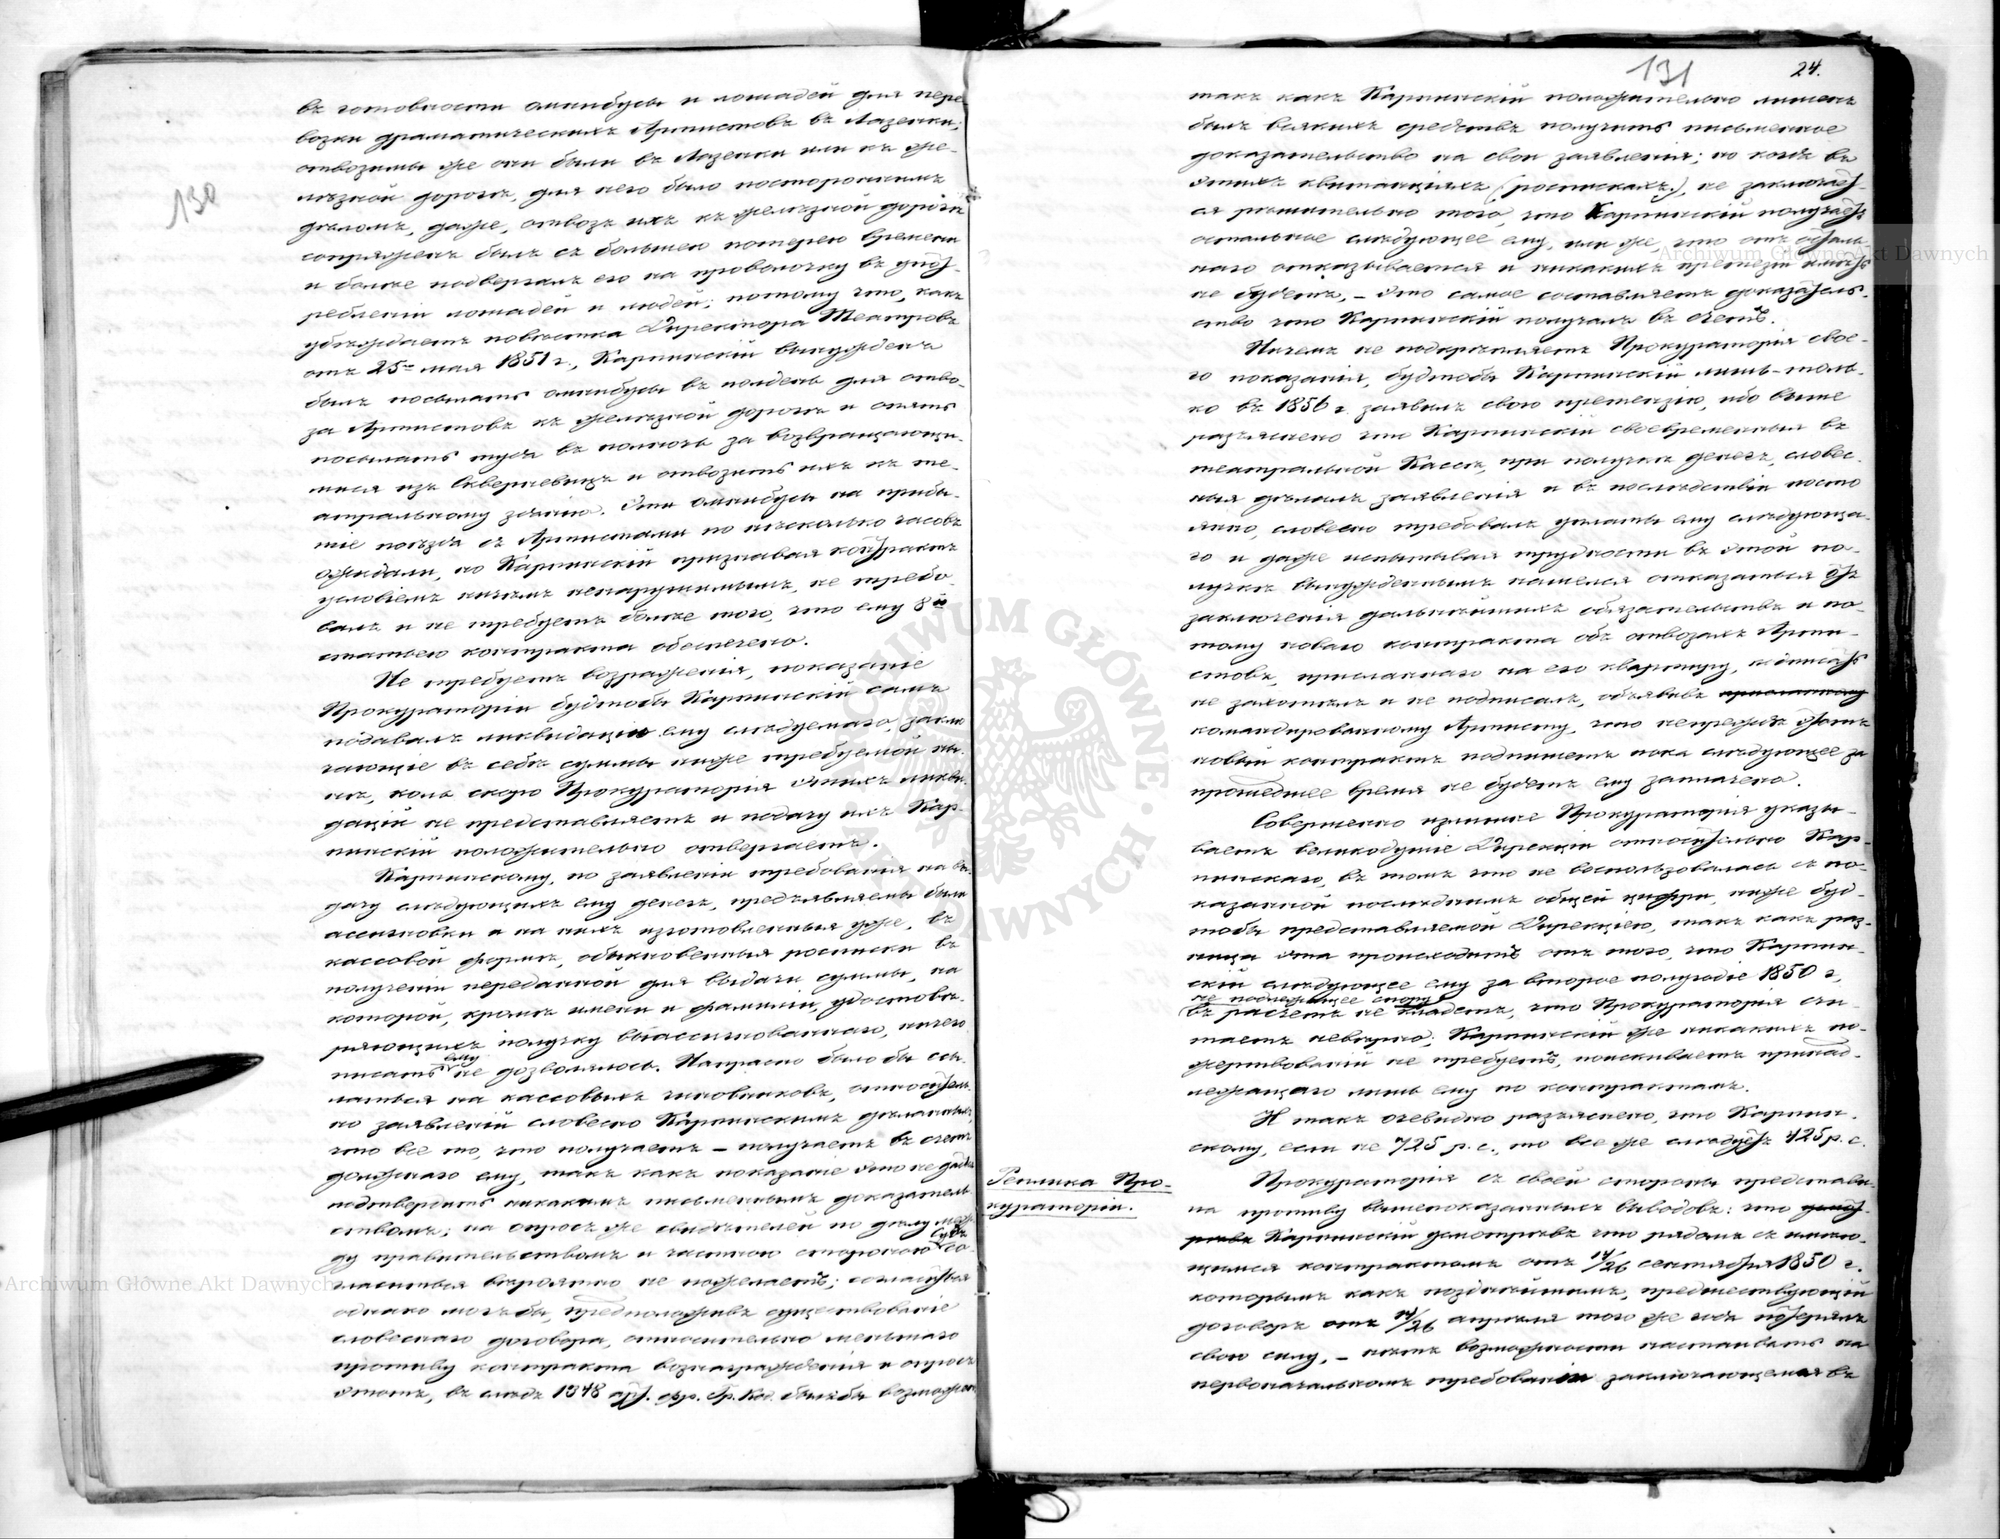 130
въ готовности омнибусы и лошадей для пере-
возки драматическихъ Артистовъ въ Лазенки;
отвозимы же они были въ Лазенки или къ же-
лѣзной дорогѣ, для него было постороннимъ
дѣломъ, даже, отвозъ ихъ къ желѣзной дорогѣ
сопряженъ былъ съ большею потерею времени
и болѣе подвергалъ его на проволочку въ упот-
ребленіи лошадей и людей; потому что, какъ
убѣждаетъ повѣстка Директора Театровъ
отъ 25го мая 1851 г., Карпинскій вынужденъ
былъ посылать омнибусы въ полдень для отво-
за Артистовъ къ желѣзной дорогѣ и опять
посылать туда въ полночь за возвращающи-
мися изъ Скерневицъ и отвозить ихъ къ те-
атральному зданію. Эти омнибусы на прибы-
тіе поѣзда съ Артистами по нѣсколько часовъ
ожидали, но Карпинскій признавая контрактъ
условіемъ ничѣмъ ненарушимымъ, не требо-
валъ и не требуетъ болѣе того, что ему 8й
статьею контракта обезпечено.
Не требуетъ возраженія, показаніе
Прокураторіи будтобы Карпинскій самъ
подавалъ ликвидаціи ему слѣдуемаго, заклю
чающіе въ себѣ суммы ниже требуемой ны-
нѣ, коль скоро Прокураторія этихъ ликви-
дацій не представляетъ и подачу ихъ Кар-
пинскій положительно отвергаетъ.
Карпинскому, по заявленіи требованія на вы-
дачу слѣдующихъ ему денегъ, предъявляемы были
ассигновки а на нихъ изготовленныя уже, въ
кассовой формѣ, обыкновенныя росписки въ
полученіи переданной для выдачи суммы, на
которой, кромѣ имени и фамиліи, удостовѣ-
ряющихъ получку выассигнованнаго, ничего
ему
писать не дозволялось. Напрасно было бы ссы-
латься на кассовыхъ чиновниковъ, относитель-
но заявленій словесно Карпинскимъ дѣланныхъ,
что все то, что получаетъ – получаетъ въ счетъ
должнаго ему, такъ какъ показаніе это не дастъ
подтвердить никакимъ письменнымъ доказатель-
ствомъ; на опросъ же свидѣтелей по дѣлу меж-
Судъ
ду правительствомъ и частною стороною со-
гласиться вѣроятно не пожелаетъ; согласиться
однако могъ бы, предположивъ существованіе
словеснаго договора, относительно меньшаго
противу контракта вознагражденія и опросъ
этотъ, въ силѣ 1348 арт. фр. Гр. Код. былъ бы возможенъ
131
24.
такъ какъ Карпинскій положительно лишенъ
былъ всякихъ средствъ получить письменное
доказательство на свои заявленія; но коль въ
этихъ квитанціяхъ (роспискахъ), не заключает-
ся рѣшительно того, что Карпинскій получаетъ
остальное слѣдующее ему, или же, что отъ осталь-
наго отказывается и никакихъ претензій имѣть
не будетъ, – это самое составляетъ доказатель-
ство что Карпинскій получалъ въ счетъ.
Ничемъ не подкрѣпляетъ Прокураторія свое-
го показанія, будтобы Карпинскій лишь-толь-
ко въ 1856 г. заявилъ свою претензію, ибо выше
разъяснено что Карпинскій своевременныя въ
театральной Кассѣ, при получкѣ денегъ, словес-
ныя дѣлалъ заявленія и въ послѣдствіи посто
янно, словесно требовалъ уплаты ему слѣдующа-
го и даже испытывая трудности въ этой по-
лучкѣ вынужденнымъ нашелся отказаться отъ
заключенія дальнѣйшихъ обязательствъ и по-
тому новаго контракта объ отвозахъ Арти-
стовъ, присланнаго на его квартиру, подписать
не захотѣлъ и не подписалъ, объявивъ присланному
командированному Артисту, что непрежде этотъ
новый контрактъ подпишетъ пока слѣдующее за
прошедшее время не будетъ ему заплачено.
Совершенно излишне Прокураторія указы-
ваетъ великодушіе Дирекціи относительно Кар-
пинскаго, въ томъ что не воспользовалась съ по-
казанной послѣднимъ общей цифры, ниже буд-
тобы представляемой Дирекціею, такъ какъ раз-
ница эта происходитъ отъ того, что Карпин-
скій слѣдующее ему за второе полугодіе 1850 г.,
не подлежащее спору
въ расчетъ не кладетъ, что Прокураторія счи-
таетъ невѣрно; Карпинскій же никакихъ по-
жертвованій не требуетъ, поискиваетъ принад-
лежащаго лишь ему по контрактамъ.
И такъ очевидно разъяснено, что Карпин-
скому, если не 725 р. с., то все же слѣдуетъ 425 р. с.
Реплика Про-
кураторіи.
Прокураторія съ своей стороны представи-
ла противу вышепоказанныхъ выводовъ: что
Карпинскій усмотрѣвъ что рядомъ съ имѣю-
щимся контрактомъ отъ 14/26 сентября 1850 г.
которымъ какъ позднѣйшимъ, предшествующій
договоръ отъ 14/26 апрѣля того же года потерялъ
свою силу, – нѣтъ возможности настаивать на
первоначальномъ требованіи заключающемся въ